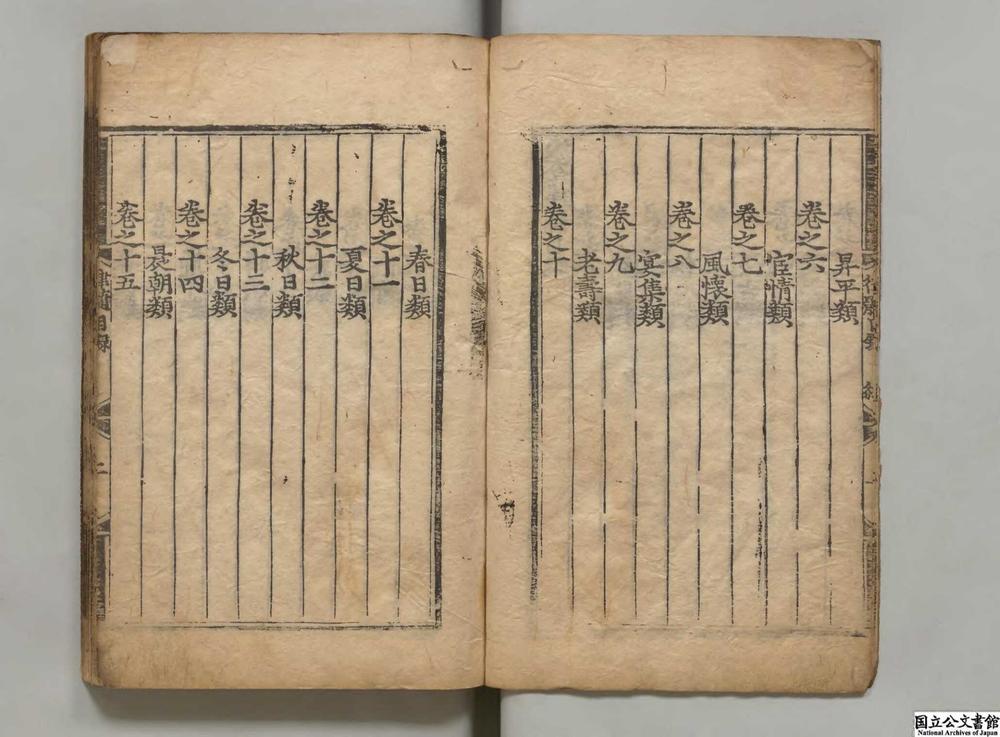 昇平類
卷之六
宦情類
卷之七
風懷類
卷之八
宴集類
卷之九
老壽類
卷之十
春日類
卷之十一
夏日類
卷之十二
秋日類
卷之十三
冬日類
卷之十四
晨朝類
卷之十五
律髓目録
二
国立公文書館
National Archives of Japan